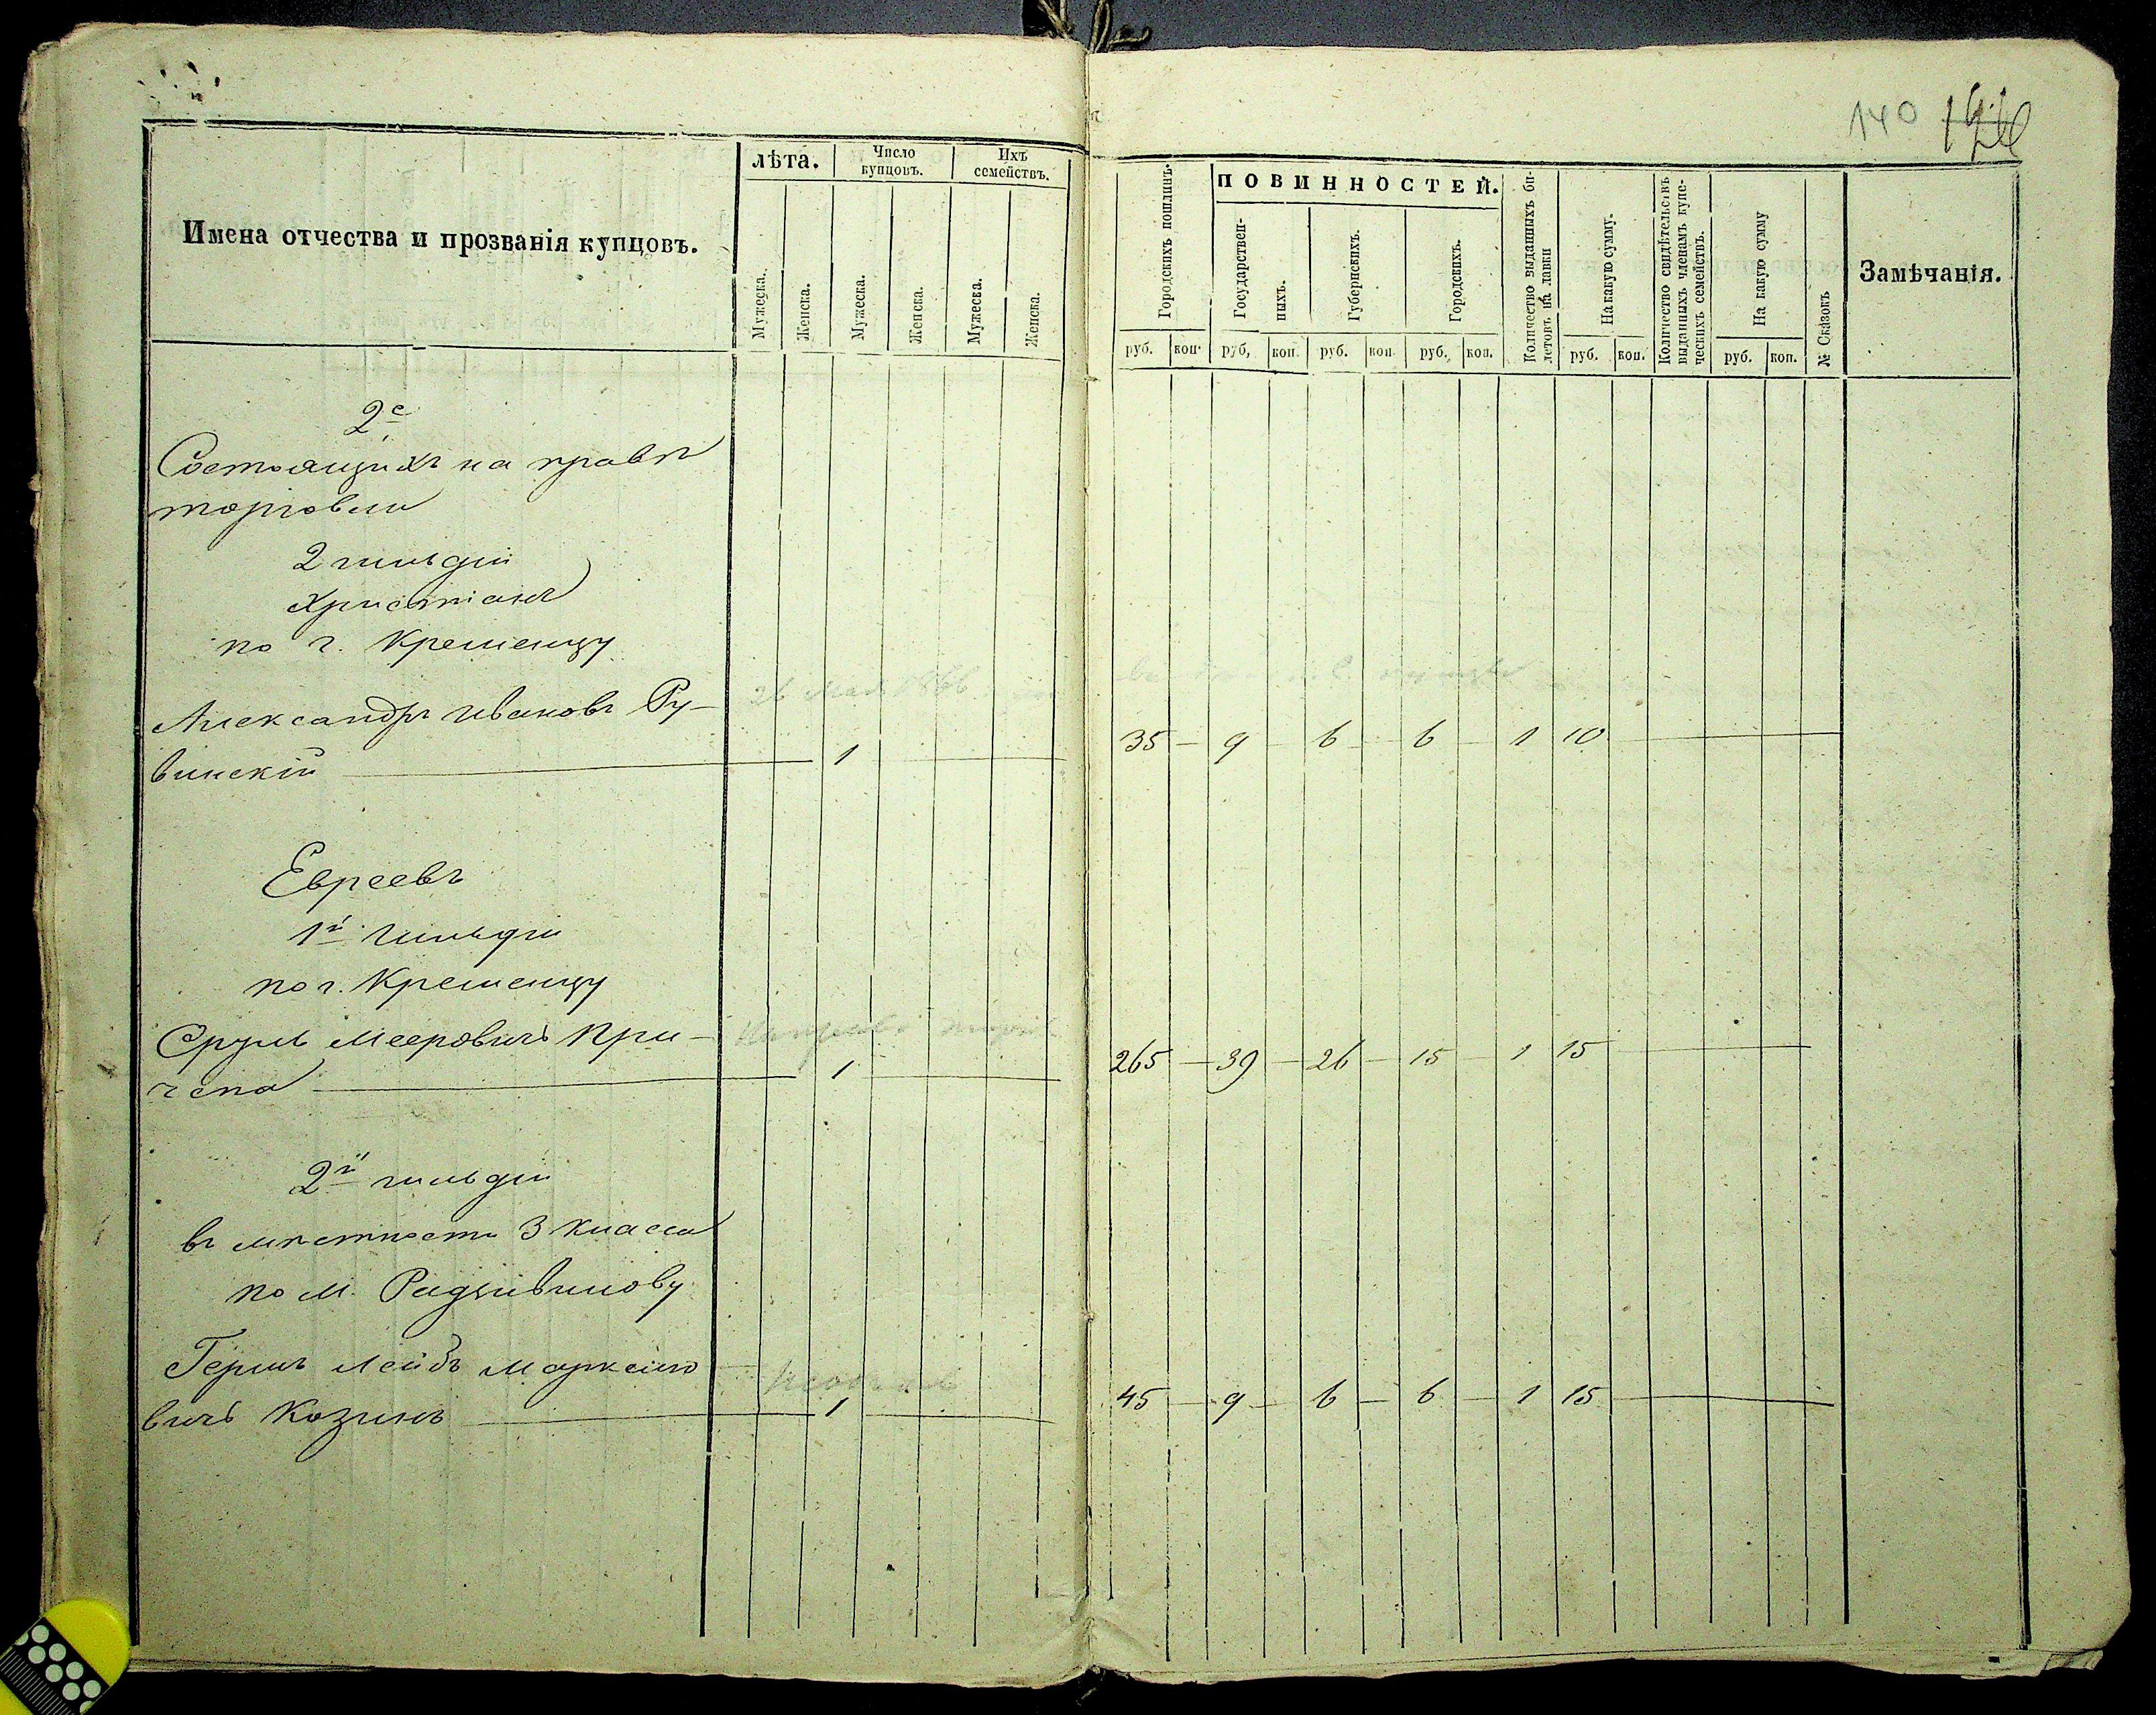 140
Имена отчества и прозванія купцовъ.
лѣта.
Число купцовъ.
Ихъ семействъ.
Мужеска.
Женска.
Мужеска.
Женска.
Мужеска.
Женска.
Городскихъ пошлинъ.
ПОВИННОСТЕЙ.
Государствен-
ныхъ.
Губернскихъ.
Городскихъ.
Количество выданныхъ би-
летовъ на лавки
На какую сумму.
Количество свидѣтельствъ
выданныхъ членамъ купе-
ческихъ семействъ.
На какую сумму
№ Сказокъ
Замѣчанія.
руб. коп. руб, коп. руб. коп. руб. коп. руб. коп. руб. коп.
2е
Состоящихъ на правѣ
торговли
2 гильдіи
Христіанъ
по г. Кременцу
26 Мая 1866
Александръ Ивановъ Ру-
винскій — 1 — 35 — 9 — 6 — 6 — 1 10 —
Евреевъ
1й Гильдіи
по г. Кременцу
Сруль Мееровичъ Кри-
чепа — 1 — 265 — 39 — 26 — 15 — 1 15 —
2й гильдіи
въ мѣстности 3 класса
по м. Радзивилову
Гершъ Лейбъ Маркелио
вичъ Козинъ — 1 — 45 — 9 — 6 — 6 — 1 15 —